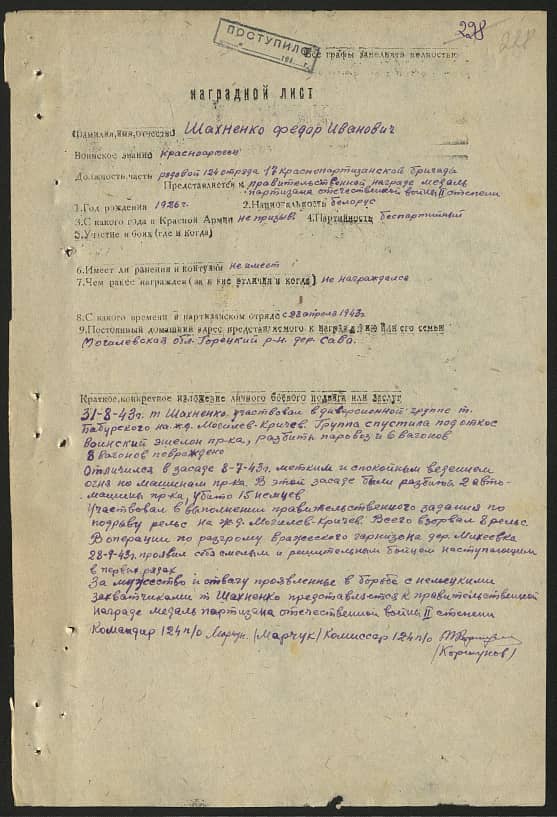 228
228
ПОСТУПИЛО
194 г.
Все графы заполнять полностью
НАГРАДНОЙ ЛИСТ
Фамилия, имя, отчество Шахненко Федор Иванович
Воинское звание Красноармеец
Должность, часть рядовой 124 отряда 17 Краснопартизанской бригады
Представляется к правительственной награде медаль
"партизана отечественной войны II степени
1.Год рождения 1926г. 2.Национальность белорус
3.С какого года в Красной Армии не призыв 4.Партийность беспартийный
5.Участие в боях (где и когда)
6.Имеет ли ранения и контузии не имеет
7.Чем ранее награжден (за какие отличия и когда) не награждался
8.С какого времени в партизанском отряде с 23 апреля 1943г.
9.Постоянный домашний адрес представляемого к награждению или его семьи
Могилевская обл. Горецкий р-н. дер. Сава.
Краткое, конкретное изложение личного боевого подвига или заслуг
31-8-43г. т Шахненко участвовал в диверсионной группе т.
Бабурского на ж.д. Могилев-Кричев. Группа спустила под откос
воинский эшелон пр-ка, разбиты паровоз и 6 вагонов
8 вагонов повреждено
Отличился в засаде 8-7-43г. метким и спокойным ведением
огня по машинам пр-ка. В этой засаде были разбиты 2 авто-
машины пр-ка, убито 15 немцев
Участвовал в выполнении правительственного задания по
подрыву рельс на ж.д. Могилев-Кричев. Всего взорвал 8 рельс.
В операции по разгрому вражеского гарнизона дер. Михеевка
28-9-43г. проявил себя смелым и решительным бойцом наступающим
в первых рядах
За мужество и отвагу проявленные в борьбе с немецкими
захватчиками т Шахненко представляется к правительственной
награде медаль партизана отечественной войны II степени
Командир 124 п/о (Марчук) Комиссар 124 п/о
(Коршунов)